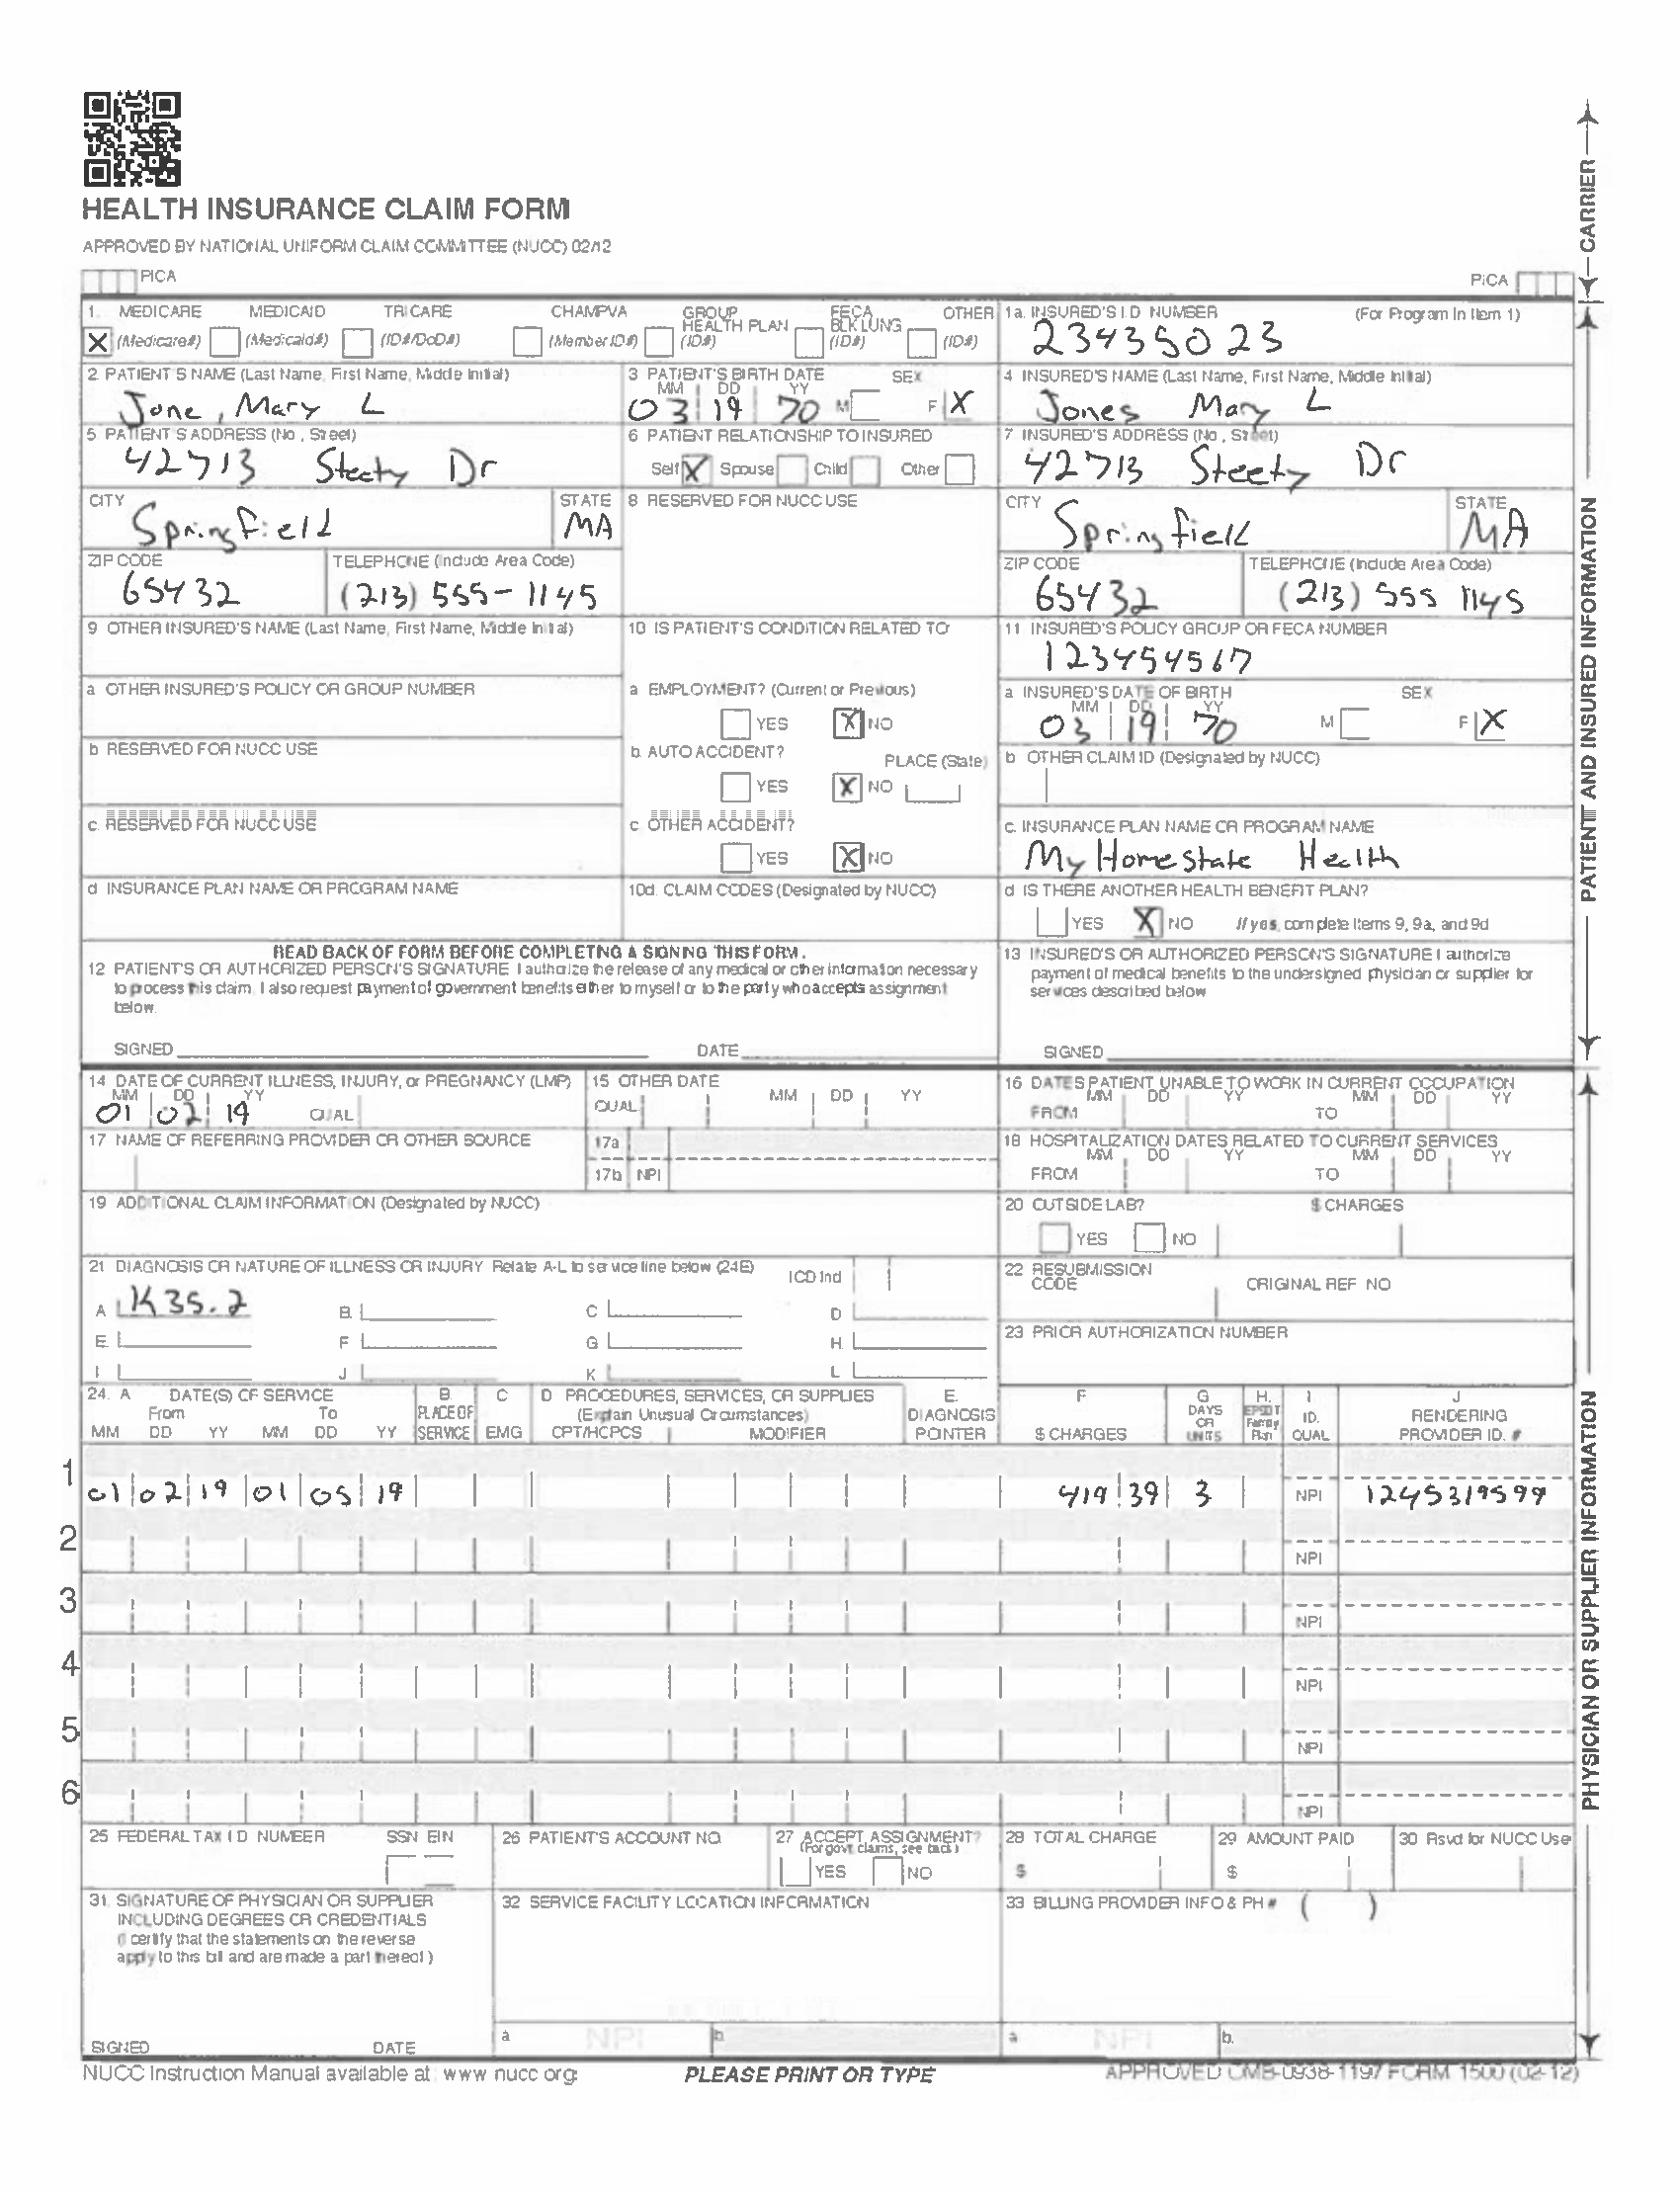 HEALTH INSURANCE CLAIM FORM
APPROVED BY NATIONAL UNIFORM CLAIM COMMITTEE (NUCC) 02/12
PICA
PICA
CARRIER
1. MEDICARE MEDICAID TRICARE CHAMPVA GROUP HEALTH PLAN FECA BLK LUNG OTHER
X (Medicare#) (Medicaid#) (ID#/DoD#) (Member ID#) (ID#) (ID#) (ID#)
1a. INSURED'S I.D NUMBER (For Program In Item 1)
23435023
2 PATIENT S NAME (Last Name, First Name, Middle Initial)
Jone, Mary L
3 PATIENT'S BIRTH DATE SEX
MM DD YY
03 19 70 M F X
4 INSURED'S NAME (Last Name, First Name, Middle Initial)
Jones Mary L
5 PATIENT S ADDRESS (No, Street)
42713 Steety Dr
6 PATIENT RELATIONSHIP TO INSURED
Self X Spouse Child Other
7 INSURED'S ADDRESS (No, Street)
42713 Steety Dr
CITY STATE
Springfield MA
8 RESERVED FOR NUCC USE
CITY STATE
Springfield MA
ZIP CODE TELEPHONE (Include Area Code)
65432 (213) 555-1145
ZIP CODE TELEPHONE (Include Area Code)
65432 (213) 555 1145
9 OTHER INSURED'S NAME (Last Name, First Name, Middle Initial)
10 IS PATIENT'S CONDITION RELATED TO
11 INSURED'S POLICY GROUP OR FECA NUMBER
123454567
a OTHER INSURED'S POLICY OR GROUP NUMBER
a EMPLOYMENT? (Current or Previous)
YES X NO
a INSURED'S DATE OF BIRTH SEX
MM DD YY
03 19 70 M F X
b RESERVED FOR NUCC USE
b. AUTO ACCIDENT? PLACE (State)
YES X NO
b OTHER CLAIM ID (Designated by NUCC)
c. RESERVED FOR NUCC USE
c OTHER ACCIDENT?
YES X NO
c. INSURANCE PLAN NAME OR PROGRAM NAME
My Home state Health
d INSURANCE PLAN NAME OR PROGRAM NAME
10d. CLAIM CODES (Designated by NUCC)
d IS THERE ANOTHER HEALTH BENEFIT PLAN?
YES X NO If yes, complete Items 9, 9a, and 9d
READ BACK OF FORM BEFORE COMPLETING & SIGNING THIS FORM.
12 PATIENT'S OR AUTHORIZED PERSON'S SIGNATURE I authorize the release of any medical or other information necessary
to process this claim. I also request payment of government benefits either to myself or to the party who accepts assignment
below.
SIGNED DATE
13 INSURED'S OR AUTHORIZED PERSON'S SIGNATURE I authorize
payment of medical benefits to the undersigned physician or supplier for
services described below
SIGNED
PATIENT AND INSURED INFORMATION
14 DATE OF CURRENT ILLNESS, INJURY, or PREGNANCY (LMP)
MM DD YY
01 02 19 QUAL
15 OTHER DATE
QUAL MM DD YY
16 DATES PATIENT UNABLE TO WORK IN CURRENT OCCUPATION
MM DD YY MM DD YY
FROM TO
17 NAME OF REFERRING PROVIDER OR OTHER SOURCE
17a
17b NPI
18 HOSPITALIZATION DATES RELATED TO CURRENT SERVICES
MM DD YY MM DD YY
FROM TO
19 ADDITIONAL CLAIM INFORMATION (Designated by NUCC)
20 OUTSIDE LAB? $ CHARGES
YES NO
21 DIAGNOSIS OR NATURE OF ILLNESS OR INJURY Relate A-L to service line below (24E) ICD Ind
A K35.2 B. C D
E. F G H.
I J K L
22 RESUBMISSION
CODE ORIGINAL REF NO
23 PRIOR AUTHORIZATION NUMBER
24. A DATE(S) OF SERVICE B. C D PROCEDURES, SERVICES, OR SUPPLIES E. F G H. I J
From To PLACE OF (Explain Unusual Circumstances) DIAGNOSIS DAYS OR UNITS EPSDT Family Plan ID. RENDERING
MM DD YY MM DD YY SERVICE EMG CPT/HCPCS MODIFIER POINTER $ CHARGES QUAL PROVIDER ID. #
1 01 02 19 01 05 19 419 39 3 NPI 1245319599
2 NPI
3 NPI
4 NPI
5 NPI
6 NPI
25 FEDERAL TAX I D NUMBER SSN EIN
26 PATIENT'S ACCOUNT NO.
27 ACCEPT ASSIGNMENT?
(For govt. claims, see back)
YES NO
28 TOTAL CHARGE
$
29 AMOUNT PAID
$
30 Rsvd for NUCC Use
31. SIGNATURE OF PHYSICIAN OR SUPPLIER
INCLUDING DEGREES OR CREDENTIALS
(I certify that the statements on the reverse
apply to this bill and are made a part thereof.)
SIGNED DATE
32 SERVICE FACILITY LOCATION INFORMATION
a NPI b
33 BILLING PROVIDER INFO & PH # ( )
a NPI b.
PHYSICIAN OR SUPPLIER INFORMATION
NUCC Instruction Manual available at: www nucc org
PLEASE PRINT OR TYPE
APPROVED OMB-0938-1197 FORM 1500 (02-12)